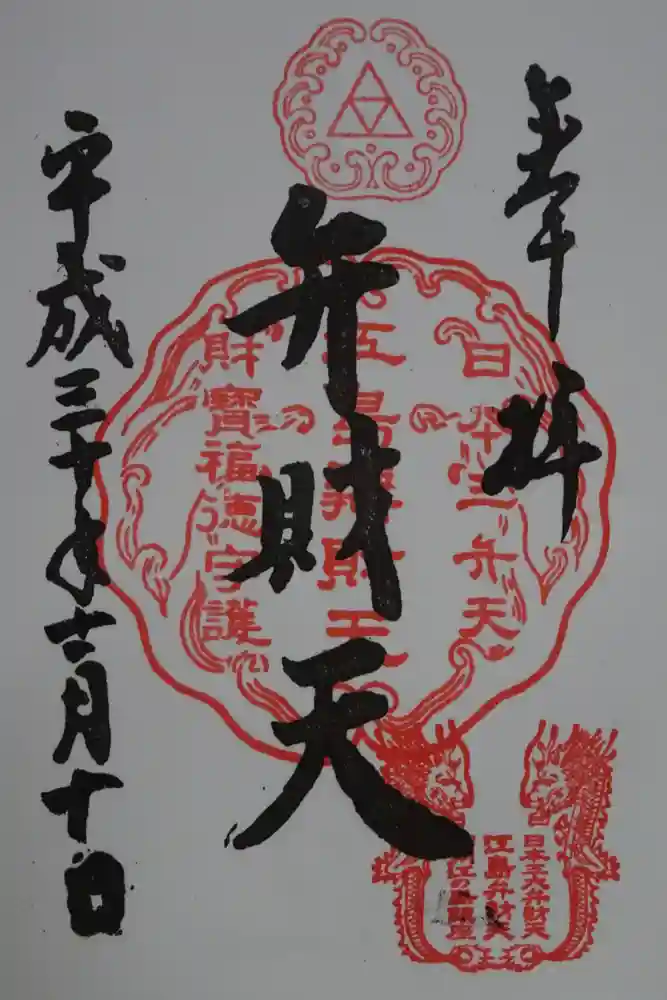 奉拝
弁財天
平成三十年十二月十日
日本三弁天
江島辨財天
財寶福徳守護
日本三大弁財天
江島弁財天